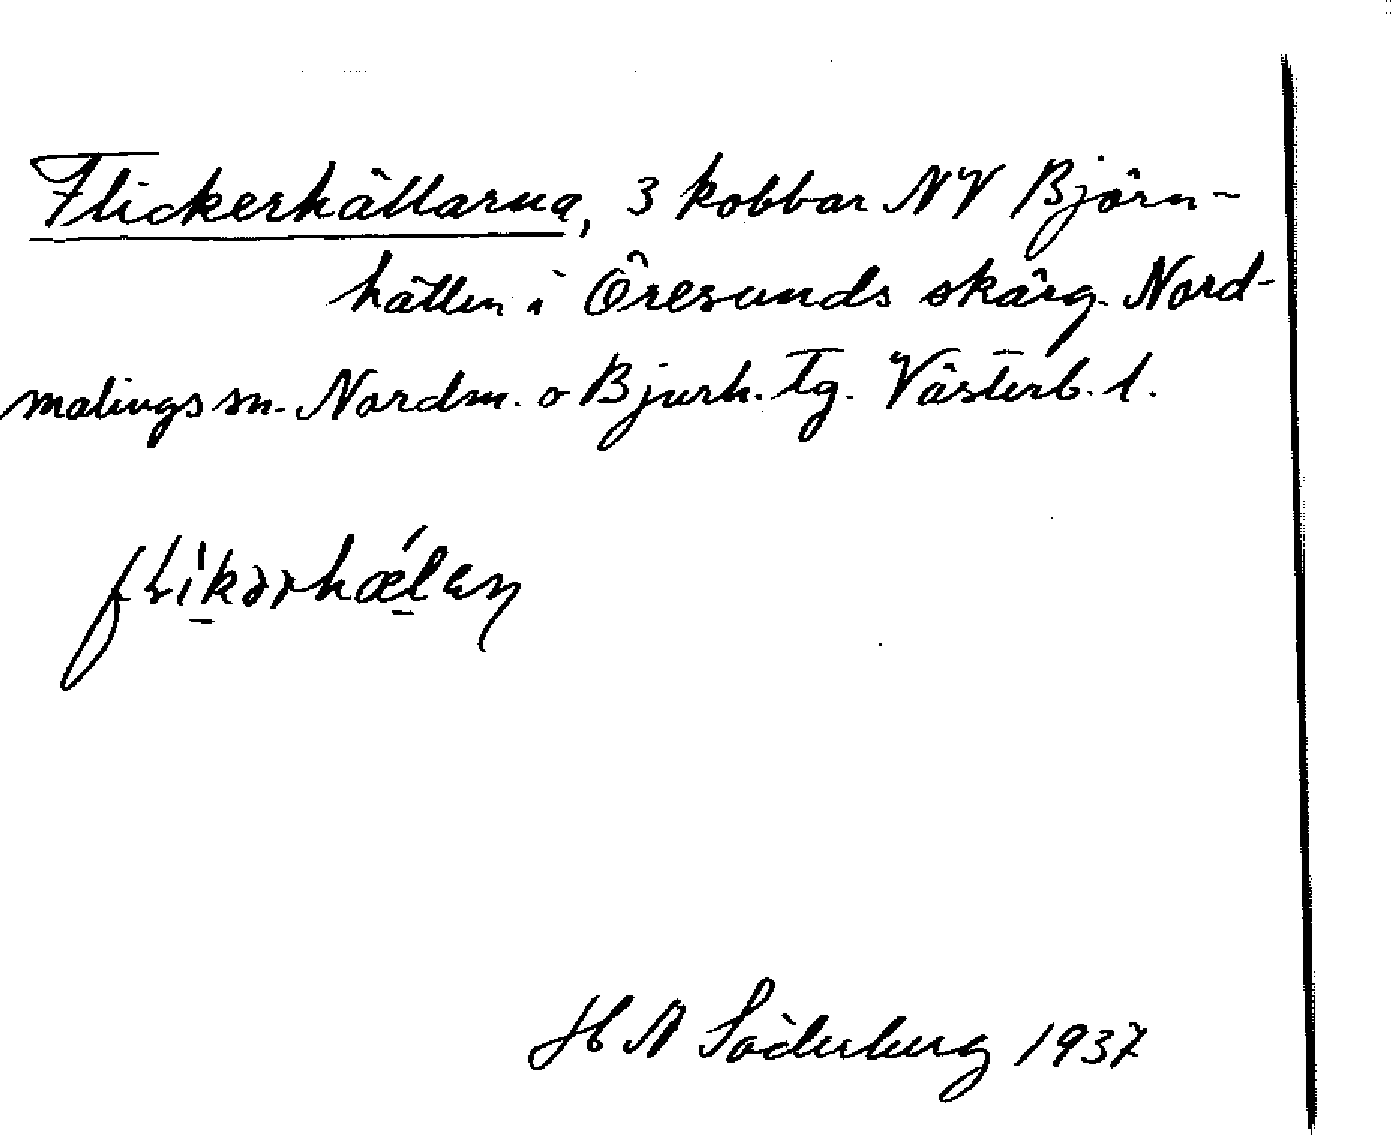 Flickerhällarna, 3 kobbar NV Björn-
hällen i Öresunds skärg. Nord-
malings sn. Nordm. o Bjurh. tg. Västerb. l.
H N Söderberg 1937